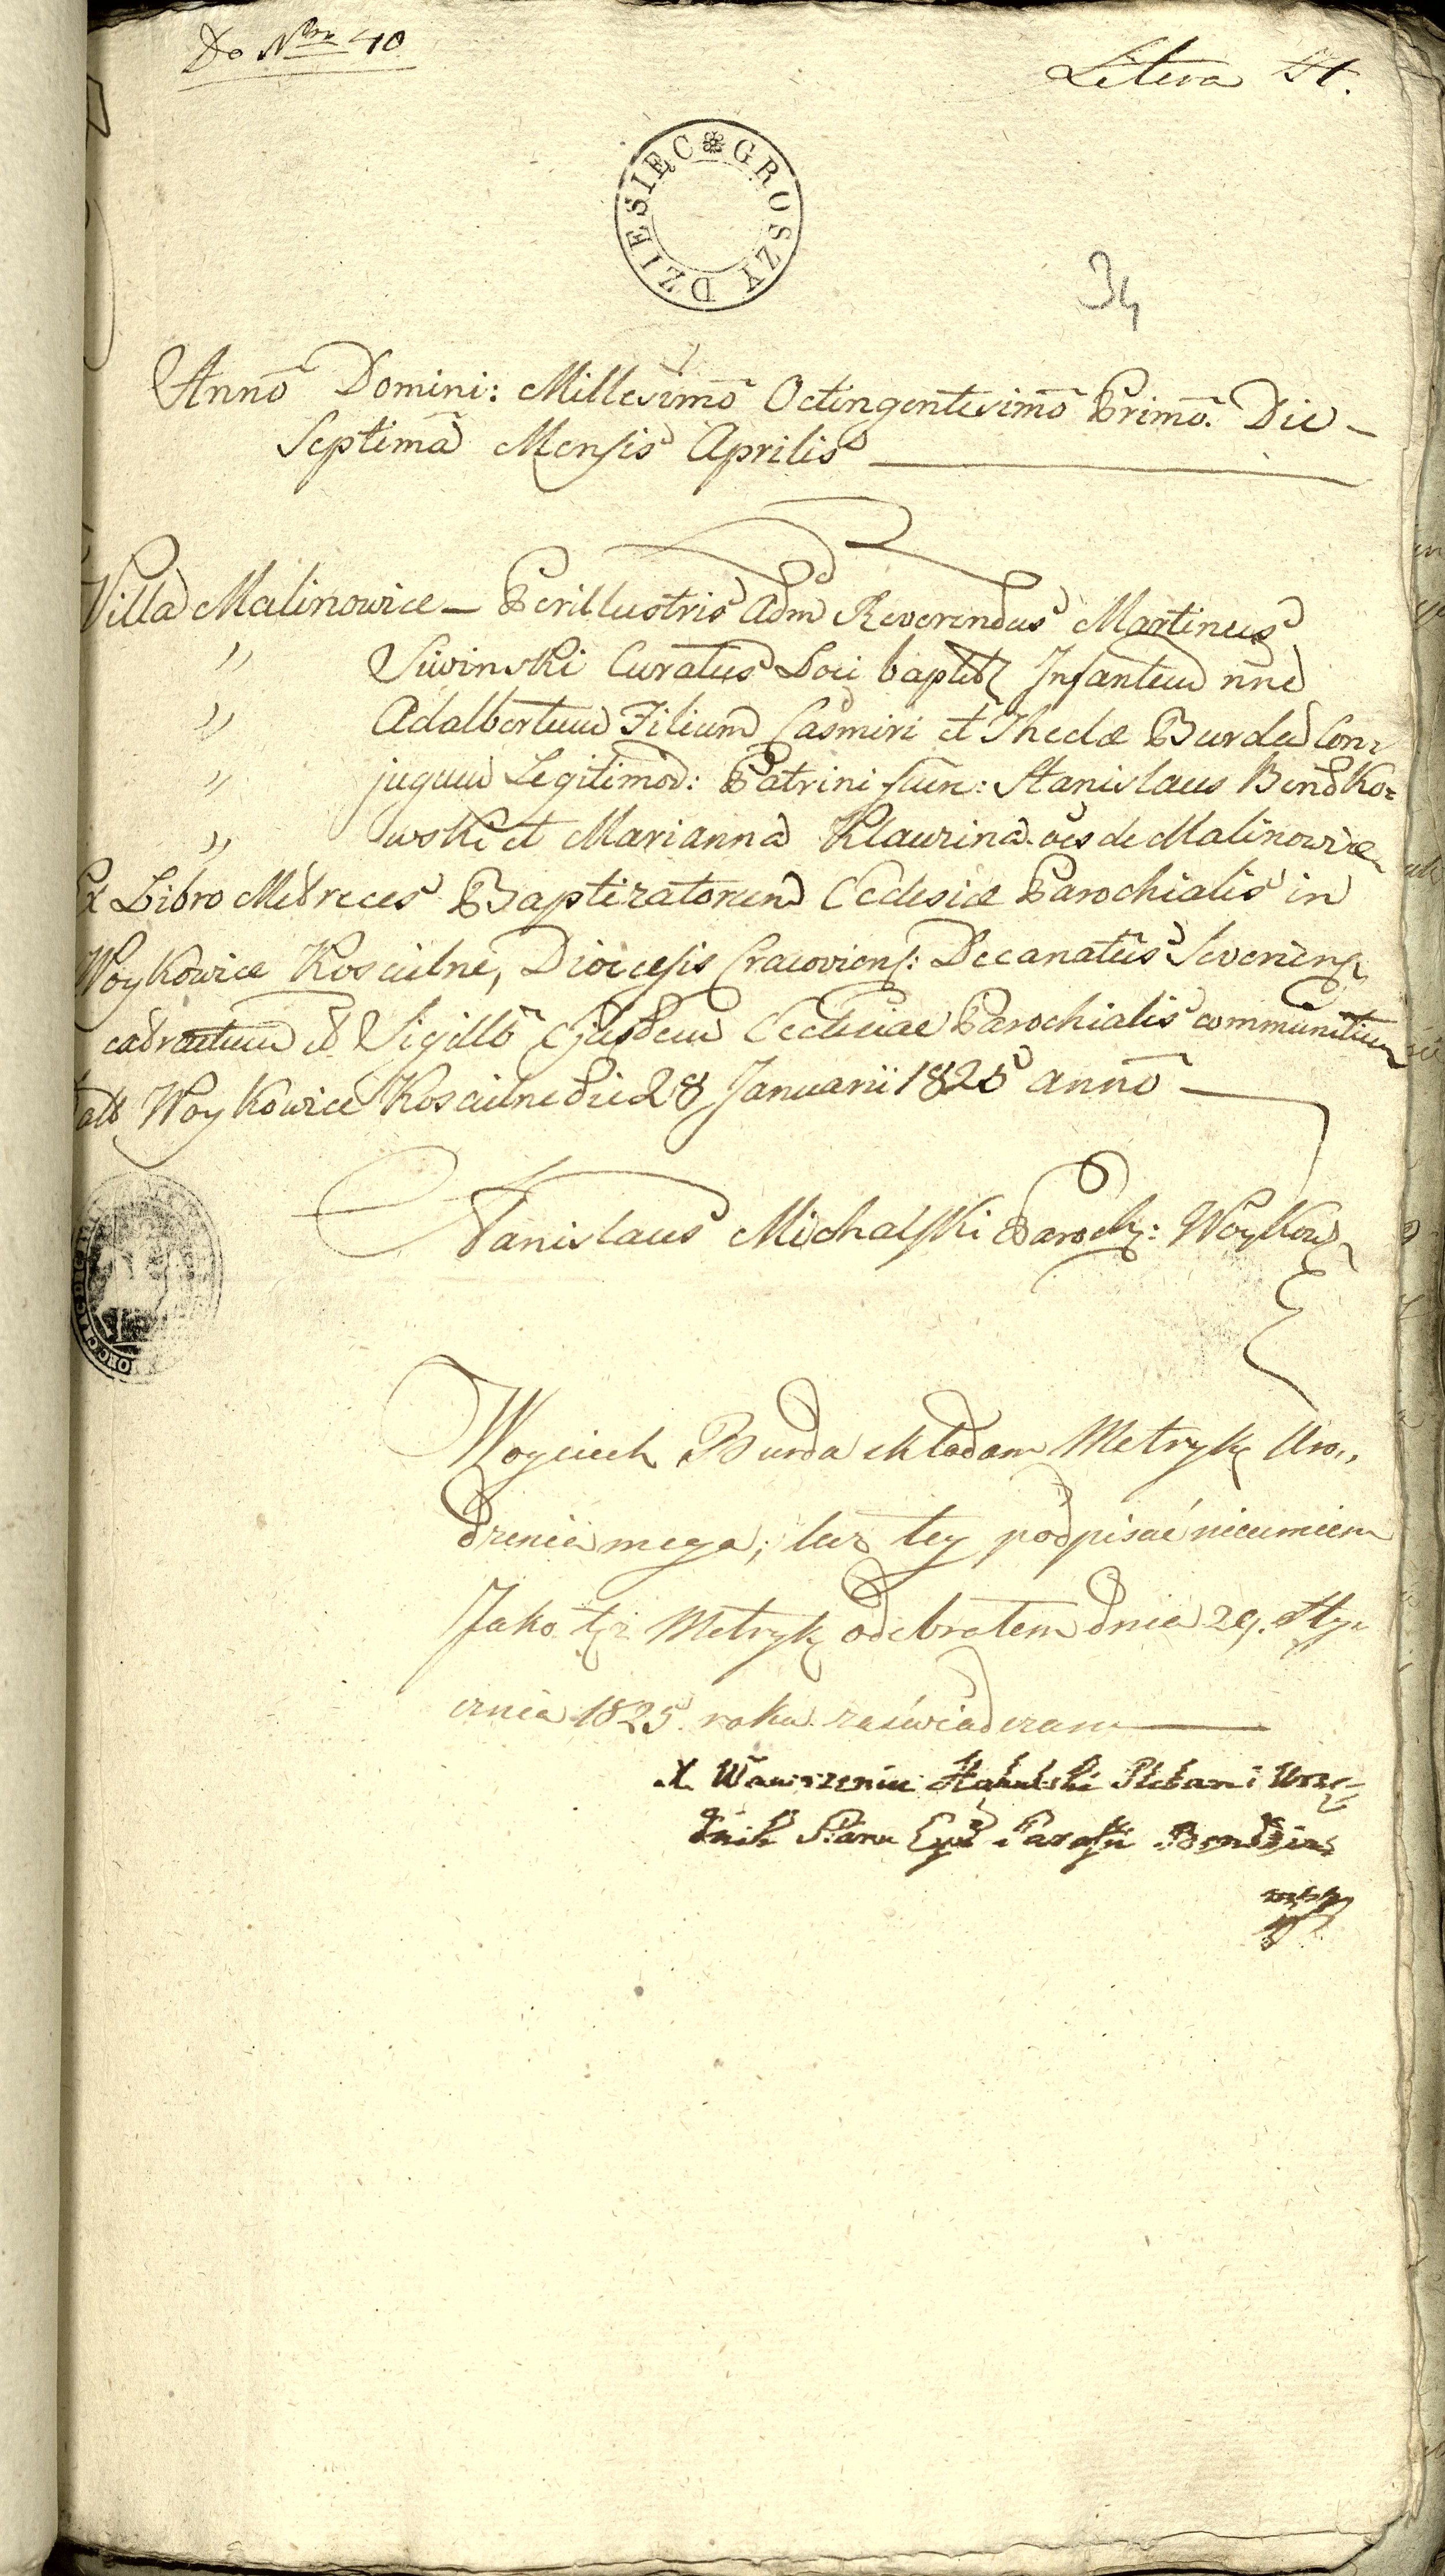 Do Nru 40
Litera A.
DZIESIĘC GROSZY
34
Anno Domini: Millesimo Octingentesimo Primo. Die
Septima Mensis Aprilis
Villa Malinowice — Perillustris Adm Reverendus Martinus
" Siwinski Curatus Loci baptiz Infantem nne
" Adalbertum Filium Casmiri et Theclæ Burda Con
" jugum Legitimor: Patrini fuer: Stanislaus Bendko
" wski et Marianna Klaurina oes de Malinowice
Ex Libro Metreces Baptizatorum Ecclesiæ Parochialis in
Woykowice Koscielne, Dioecesis Cracoviens: Decanatus Severiens
extractum et Sigillo Ejusdem Ecclesiae Parochialis communitum
att Woykowice Koscielne die 28 Januarii 1825 anno
Stanislaus Michalski Paroch: Woykow
Woyciech Burda składam Metrykę Uro,,
dzenia mego; lecz tey podpisać nieumiem
Jako tęż Metrykę odebrałem dnia 29. Sty
cznia 1825 roku zaświadczam
X Wawrzeniec Pleban i Urzę
dnik Stanu Cyw Parafii Bendzins